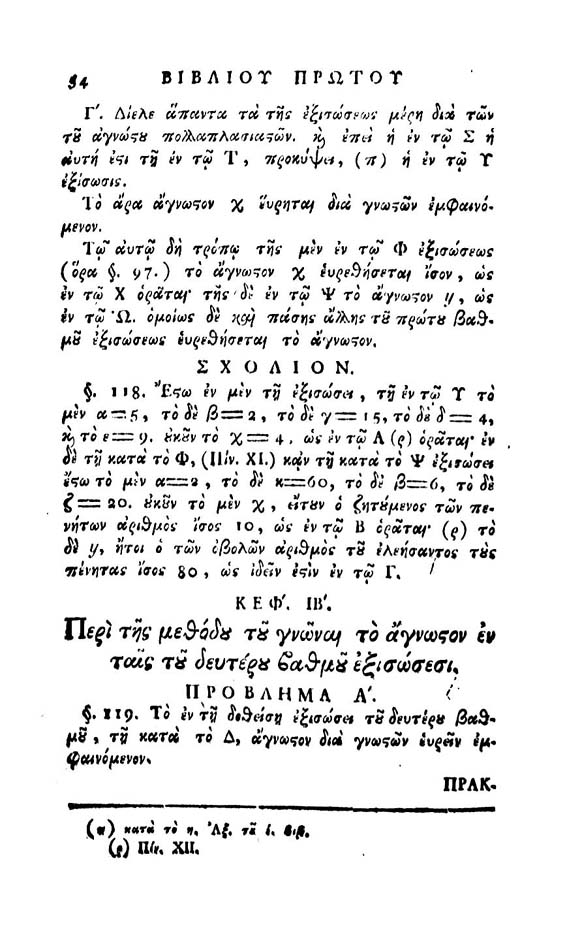 54 ΒΙΒΛΙΟΥ ΠΡΩΤΟΥ
Γ΄. Δίελε ἅπαντα τὰ τῆς ἐξισώσεως μέρη διὰ τῶν
τȣ͂ ἀγνώςȣ πολλαπλασιαςῶν. ϗ̀ ἐπεὶ ἡ ἐν τῷ Σ ἡ
αὐτή ἐςι τῇ ἐν τῷ Τ, προκύψει, (π) ἡ ἐν τῷ Υ
ἐξίσωσις.
Τὸ ἄρα ἄγνωςον χ ἕυρηται διὰ γνωςῶν ἐμφαινό-
μενον.
Τῷ αὐτῷ δὴ τρόπῳ τῆς μὲν ἐν τῷ Φ ἐξισώσεως
(ὅρα §. 97.) τὸ ἄγνωςον χ ἑυρεθήσεται ἴσον, ὡς
ἐν τῷ Χ ὁρᾶται· τῆς δὲ ἐν τῷ Ψ τὸ ἄγνωςον y, ὡς
ἐν τῷ Ω. ὁμοίως δὲ καὶ πάσης ἄλλης τȣ͂ πρώτȣ βαθ-
μȣ͂ ἐξισώσεως ἑυρεθήσεται τὸ ἄγνωςον.
ΣΧΟΛΙΟΝ.
§. 118. Ἔςω ἐν μὲν τῇ ἐξισώσει, τῇ ἐν τῷ Υ τὸ
μὲν α=5, τὸ δὲ β=2, τὸ δὲ γ=15, τὸ δὲ δ=4,
ϗ̀ τὸ ε=9. ȣ̓κȣ͂ν τὸ χ=4, ὡς ἐν τῷ Α (ρ) ὁρᾶται· ἐν
δὲ τῇ κατὰ τὸ Φ, (Πίν. ΧΙ.) κᾂν τῇ κατὰ τὸ Ψ ἐξισώσει
ἔςω τὸ μὲν α=2, τὸ δὲ κ=60, τὸ δὲ β=6, τὸ δὲ
ζ=20. ȣ̓κȣ͂ν τὸ μὲν χ, εἴτȣν ὁ ζητȣ́μενος τῶν πε-
νήτων ἀριθμὸς ἴσος 10, ὡς ἐν τῷ Β ὁρᾶται· (ρ) τὸ
δὲ y, ἤτοι ὁ τῶν ὀβολῶν ἀριθμὸς τȣ͂ ἐλεήσαντος τȣ̀ς
πένητας ἴσος 80, ὡς ἰδεῖν ἐςὶν ἐν τῷ Γ.
ΚΕΦ΄. ΙΒ΄.
Περὶ τῆς μεθόδȣ τȣ͂ γνῶναι τὸ ἄγνωςον ἐν
ταῖς τȣ͂ δευτέρȣ βαθμȣ͂ ἐξισώσεσι.
ΠΡΟΒΛΗΜΑ Α΄.
§. 119. Τὸ ἐν τῇ δοθείσῃ ἐξισώσει τȣ͂ δευτέρȣ βαθ-
μȣ͂, τῇ κατὰ τὸ Δ, ἄγνωςον διὰ γνωςῶν ἑυρεῖν ἐμ-
φαινόμενον.
ΠΡΑΚ-
(π) κατὰ τὸ η. Ἀξ. τȣ͂ ί. βιβ.
(ρ) Πίν. ΧΙΙ.